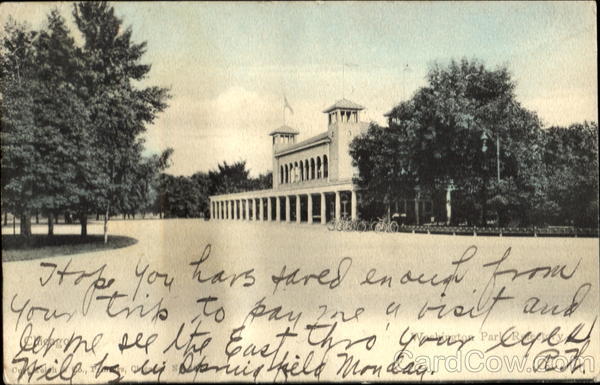 Hope you have saved enough from
your trip, to pay me a visit and
let me see the East thro' your eyes.
Will be in Springfield Monday.
Chicago.
Washington Park
CardCow.com